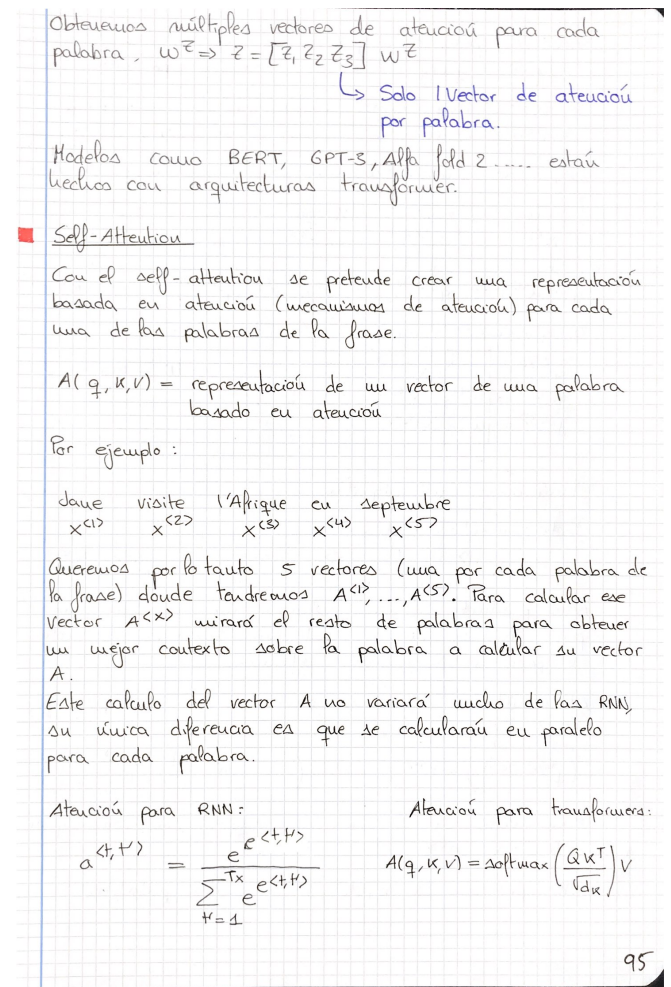 Obtenemos múltiples vectores de atención para cada
palabra. W^Z => Z = [Z₁ Z₂ Z₃] W^Z
↳ Solo 1 Vector de atención
por palabra.
Modelos como BERT, GPT-3, Alfa fold 2 ..... están
hechos con arquitecturas transformer.
Self-Attention
Con el self-attention se pretende crear una representación
basada en atención (mecanismos de atención) para cada
una de las palabras de la frase.
A(q, K, V) = representación de un vector de una palabra
basado en atención
Por ejemplo:
Jane visite l'Afrique en septembre
x^<1> x^<2> x^<3> x^<4> x^<5>
Queremos por lo tanto 5 vectores (una por cada palabra de
la frase) donde tendremos A^<1>, ..., A^<5>. Para calcular ese
vector A^<x> mirará el resto de palabras para obtener
un mejor contexto sobre la palabra a calcular su vector
A.
Este calculo del vector A no variará mucho de las RNN,
su única diferencia es que se calcularán en paralelo
para cada palabra.
Atención para RNN: Atención para transformers:
a^<t,t'> = e^(e^<t,t'>) / Σ_(t'=1)^(Tx) e^(e^<t,t'>) A(q, K, V) = softmax (QK^T / √d_K) V
95